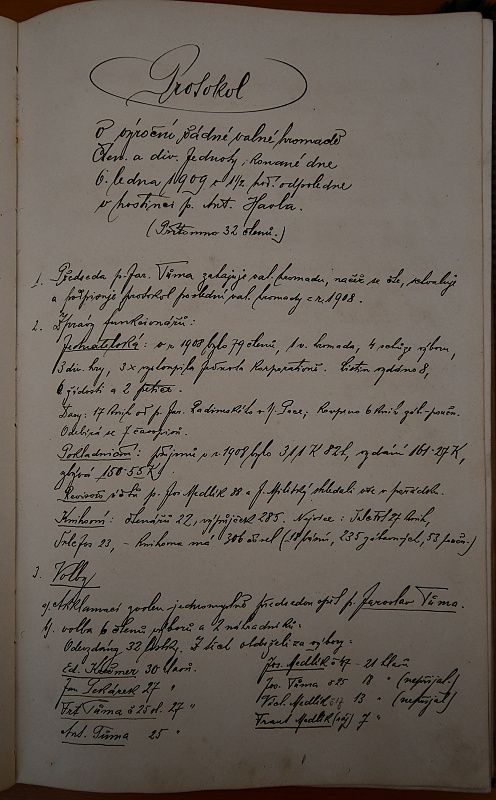 Protokol
o výroční řádné valné hromadě
Čten. a div. Jednoty, konané dne
6. ledna 1909 o 1 1/2 hod. odpoledne
v hostinci p. Ant. Havla.
(Přítomno 32 členů.)
1. Předseda p. Jar. Tůma zahajuje val. hromadu, načež se čte, schvaluje
a podpisuje protokol poslední val. hromady z r. 1908.
2. Zprávy funkcionářů:
Jednatelská: v r. 1908 bylo 79 členů, 1 v. hromada, 4 schůze výboru,
3 div. hry, 3 x vystoupila Jednota korporativně. Listin vydáno 8,
žádosti a 2 petice.
Dary: 17 knih od p. Jar. ; koupeno 6 knih záb.-pouč.
Odebírá se 7 časopisů.
Pokladniční: příjmů v r. 1908 bylo 311 K 82 h, vydání 161·27 K,
zbývá 150·55 K.
Revisoři účtů p. Jos. Medlík 38 a J. Militský shledali vše v pořádku.
Knihovní: čtenářů 22, výpůjček 285. Nejvíce: 27 knih,
23, – knihovna má 306 čísel (18 , 235 zábavných, 53 pouč.)
3. Volby
a) Aklamací zvolen jednomyslně předsedou opět p. Jaroslav Tůma.
b) volba 6 členů výboru a 2 náhradníků:
Odevzdáno 32 lístky. Z těch obdrželi za výbory:
Ed. 30 hlasů.
Jan 27 "
Frt. Tůma č 25 27 "
Ant. Tůma 25 "
Jos. Medlík č 47 - 21 hlasů
Jos. Tůma č 25 18 " (nepřijal.)
Václ. Medlík 13 " (nepřijal)
Frant. Medlík 7 "